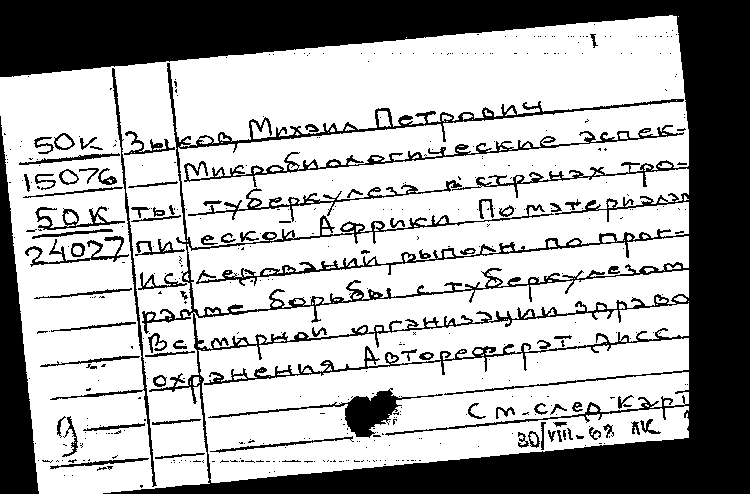 1
50К Зыков, Михаил Петрович
15076 Микробиологические аспек-
50К ты туберкулеза в странах тро-
24027 пической Африки. По материалам
исследований, выполн. по прог-
рамме борьбы с туберкулезом
Всемирной организации здраво
охранения. Автореферат дисс.
См. след карт
g
30/VIII-68 ЛК